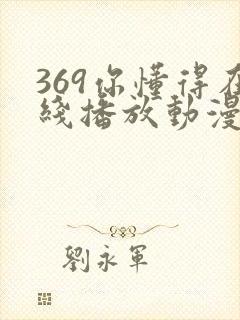 369你懂得在
綫播放動漫
劉永軍